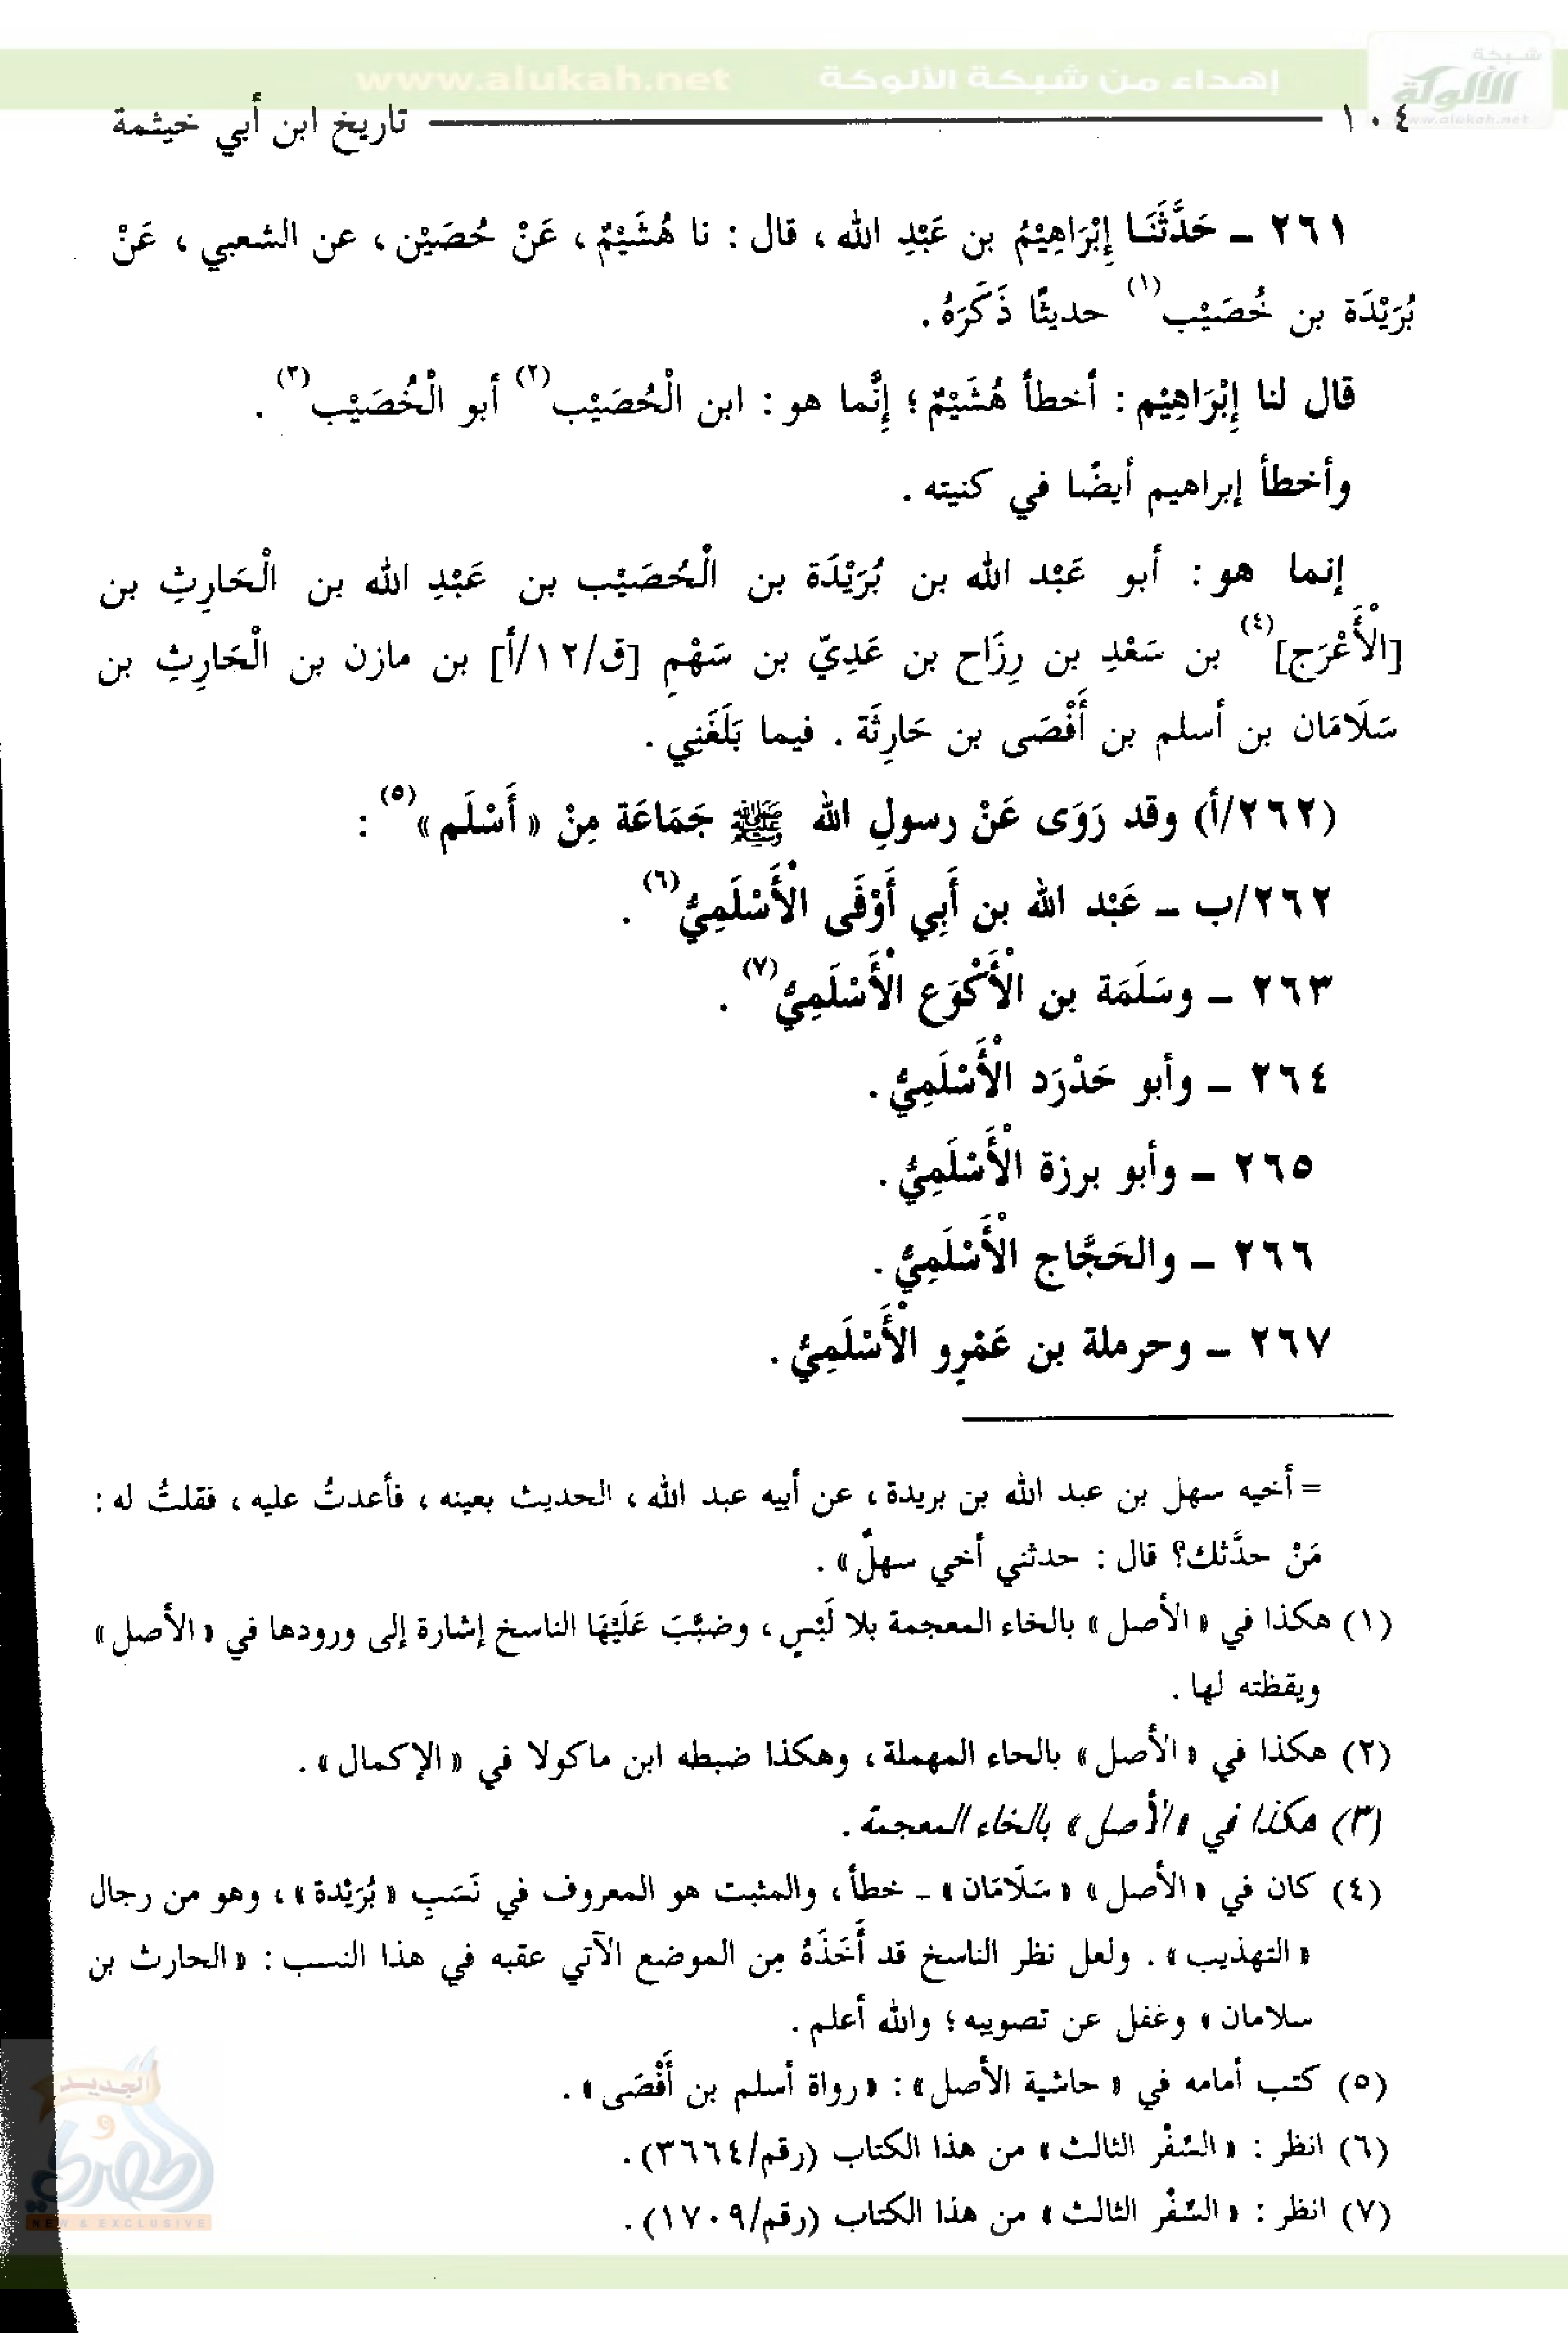 شبكة
الألوكة
www.alukah.net
إهداء من شبكة الألوكة www.alukah.net
١٠٤ تاريخ ابن أبي خيثمة
٢٦١ ـ حَدَّثَنَا إِبْرَاهِيْمُ بن عَبْدِ الله ، قال : نا هُشَيْمٌ ، عَنْ حُصَيْن ، عن الشعبي ، عَنْ
بُرَيْدَة بن خُصَيْب(١) حديثًا ذَكَرَهُ .
قال لنا إِبْرَاهِيْم : أخطأ هُشَيْمٌ ؛ إنَّما هو : ابن الْحُصَيْب(٢) أبو الْخُصَيْب(٣) .
وأخطأ إبراهيم أيضًا في كنيته .
إنما هو : أبو عَبْد الله بن بُرَيْدَة بن الْحُصَيْب بن عَبْدِ الله بن الْحَارِثِ بن
[الْأَعْرَج](٤) بن سَعْدِ بن رِزَاح بن عَدِيّ بن سَهْمِ [ق/١٢/أ] بن مازن بن الْحَارِثِ بن
سَلَامَان بن أسلم بن أَفْصَى بن حَارِثَة . فيما بَلَغَنِي .
(٢٦٢/أ) وقد رَوَى عَنْ رسولِ الله ﷺ جَمَاعَة مِنْ « أَسْلَم »(٥) :
٢٦٢/ب ـ عَبْد الله بن أَبِي أَوْفَى الْأَسْلَمِيُّ(٦) .
٢٦٣ ـ وسَلَمَة بن الْأَكْوَع الْأَسْلَمِيُّ(٧) .
٢٦٤ ـ وأبو حَدْرَد الْأَسْلَمِيُّ .
٢٦٥ ـ وأبو برزة الْأَسْلَمِيُّ .
٢٦٦ ـ والحَجَّاج الْأَسْلَمِيُّ .
٢٦٧ ـ وحرملة بن عَمْرِو الْأَسْلَمِيُّ .
= أخيه سهل بن عبد الله بن بريدة ، عن أبيه عبد الله ، الحديث بعينه ، فأعدتُ عليه ، فقلتُ له :
مَنْ حدَّثك؟ قال : حدثني أخي سهلٌ » .
(١) هكذا في « الأصل » بالخاء المعجمة بلا لَبْسٍ ، وضبَّبَ عَلَيْهَا الناسخ إشارة إلى ورودها في « الأصل »
ويقظته لها .
(٢) هكذا في « الأصل » بالحاء المهملة ، وهكذا ضبطه ابن ماكولا في « الإكمال » .
(٣) هكذا في « الأصل » بالخاء المعجمة .
(٤) كان في « الأصل » « سَلَامَان » ـ خطأ ، والمثبت هو المعروف في نَسَبِ « بُرَيْدة » ، وهو من رجال
« التهذيب » . ولعل نظر الناسخ قد أَخَذَهُ مِن الموضع الآتي عقبه في هذا النسب : « الحارث بن
سلامان » وغفل عن تصويبه ؛ والله أعلم .
(٥) كتب أمامه في « حاشية الأصل » : « رواة أسلم بن أَفْصَى » .
(٦) انظر : « السِّفْر الثالث » من هذا الكتاب (رقم/٣٦٦٤) .
(٧) انظر : « السِّفْر الثالث » من هذا الكتاب (رقم/١٧٠٩) .
الجديد
و
NEW & EXCLUSIVE